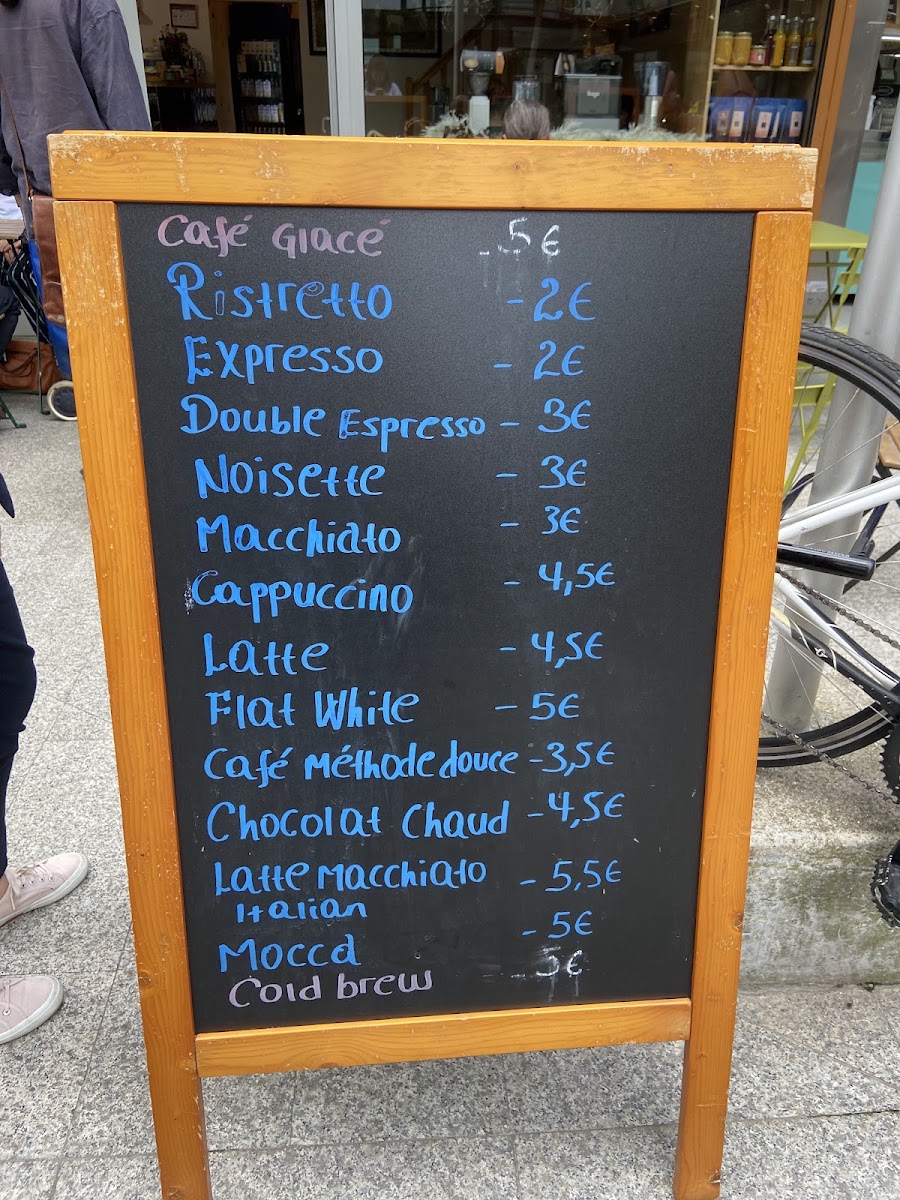 Café Glacé - 5€
Ristretto - 2€
Expresso - 2€
Double Espresso - 3€
Noisette - 3€
Macchiato - 3€
Cappuccino - 4,5€
Latte - 4,5€
Flat White - 5€
Café Méthode douce - 3,5€
Chocolat Chaud - 4,5€
Latte Macchiato - 5,5€
Italian
Mocca - 5€
Cold brew - 5€